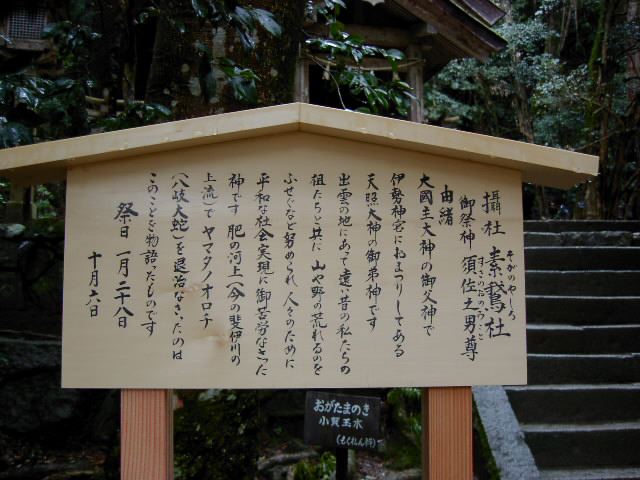 攝社 素鵞社
そがのやしろ
御祭神 須佐之男尊
すさのおのみこと
由緒
大國主大神の御父神で
伊勢神宮におまつりしてある
天照大神の御弟神です
出雲の地にあって遠い昔の私たちの
祖たちと共に 山や野の荒れるのを
ふせぐなど努められ 人々のために
平和な社会実現に御苦労なさった
神です 肥の河上(今の斐伊川の
上流)で ヤマタノオロチ
(八岐大蛇)を退治なさったのは
このことを物語ったものです
祭日 一月二十八日
十月六日
おがたまのき
小賀玉木
(もくれん科)